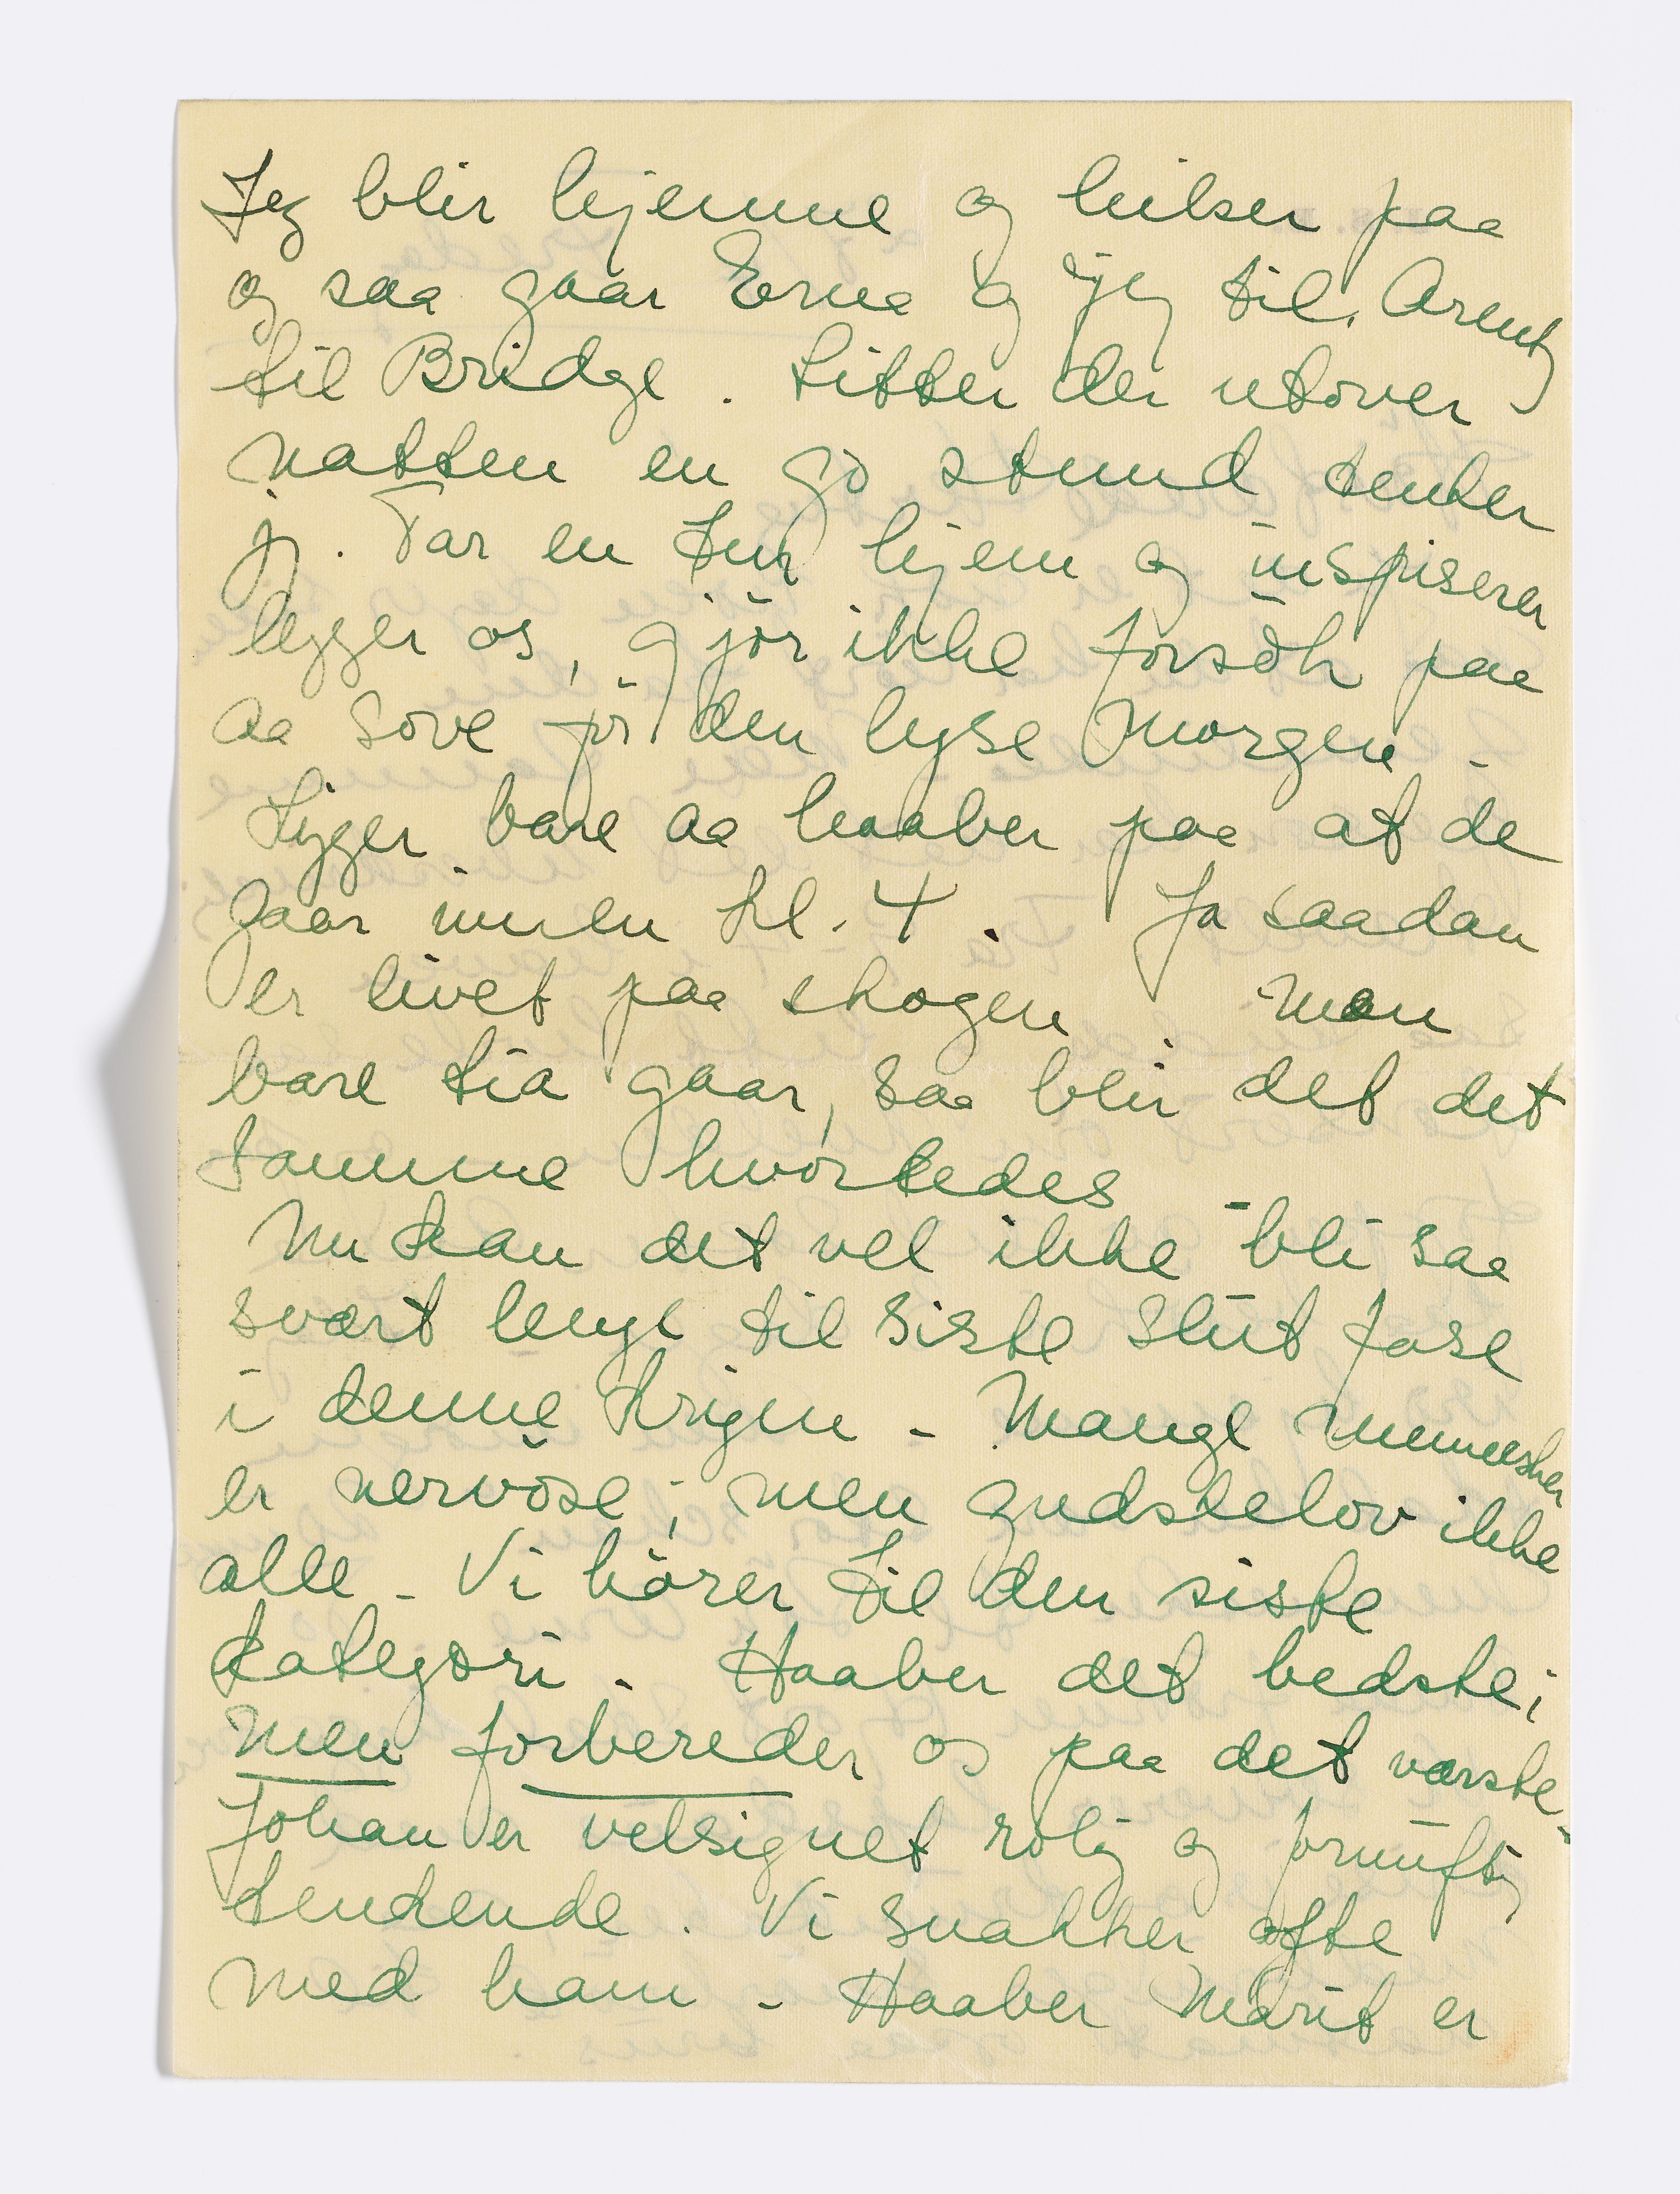 Jeg blir hjemme og hilser paa
og saa gaar Erna og jeg til Arentz
til Bridge. Sitter der utover
natten en go stund tenker
jeg. Tar en tur hjem og inspiserer
legger os, gjör ikke forsök paa
aa sove för den lyse morgen -
Ligger bare aa haaber paa at de
gaar innen kl. 4. Ja saadan
er livet paa skogen. Men
bare tia gaar, saa blir det det
samme hvorledes -
Nu kan det vel ikke bli saa
svært lenge til siste slut fase
i denne krigen - Mange mennesker
er nervöse; men gudskelov ikke
alle - Vi hörer til den siste
kategori. Haaber det bedste;
men forbereder os paa det værste -
Johan er velsignet rolig og fornuftig
tenkende. Vi snakker ofte
med ham - Haaber Marit er